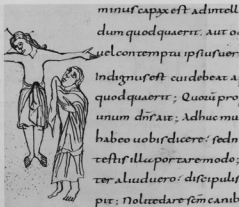 minus capax est ad intell
dum quod quaerit. aut o
uel contemptu ipsius uer
Indignus est cui debeat a
quod quaerit; Quorū pro
unum dn̄s ait; Adhuc mu
habeo uobis dicere; sed n
testis illa portare modo;
ter aliud uero; discipulis
Nolite dare sc̄m canib